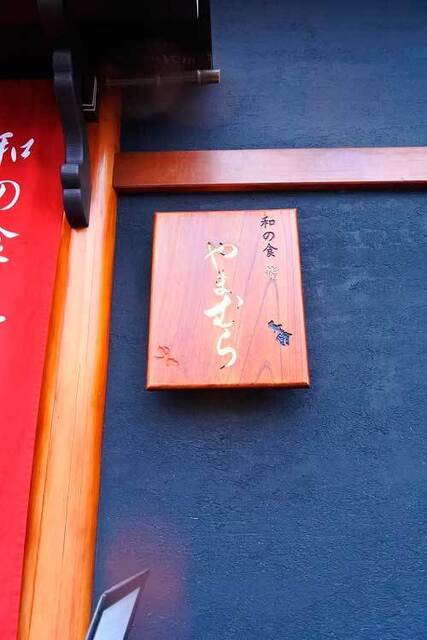 和の食
やまむら
和の食